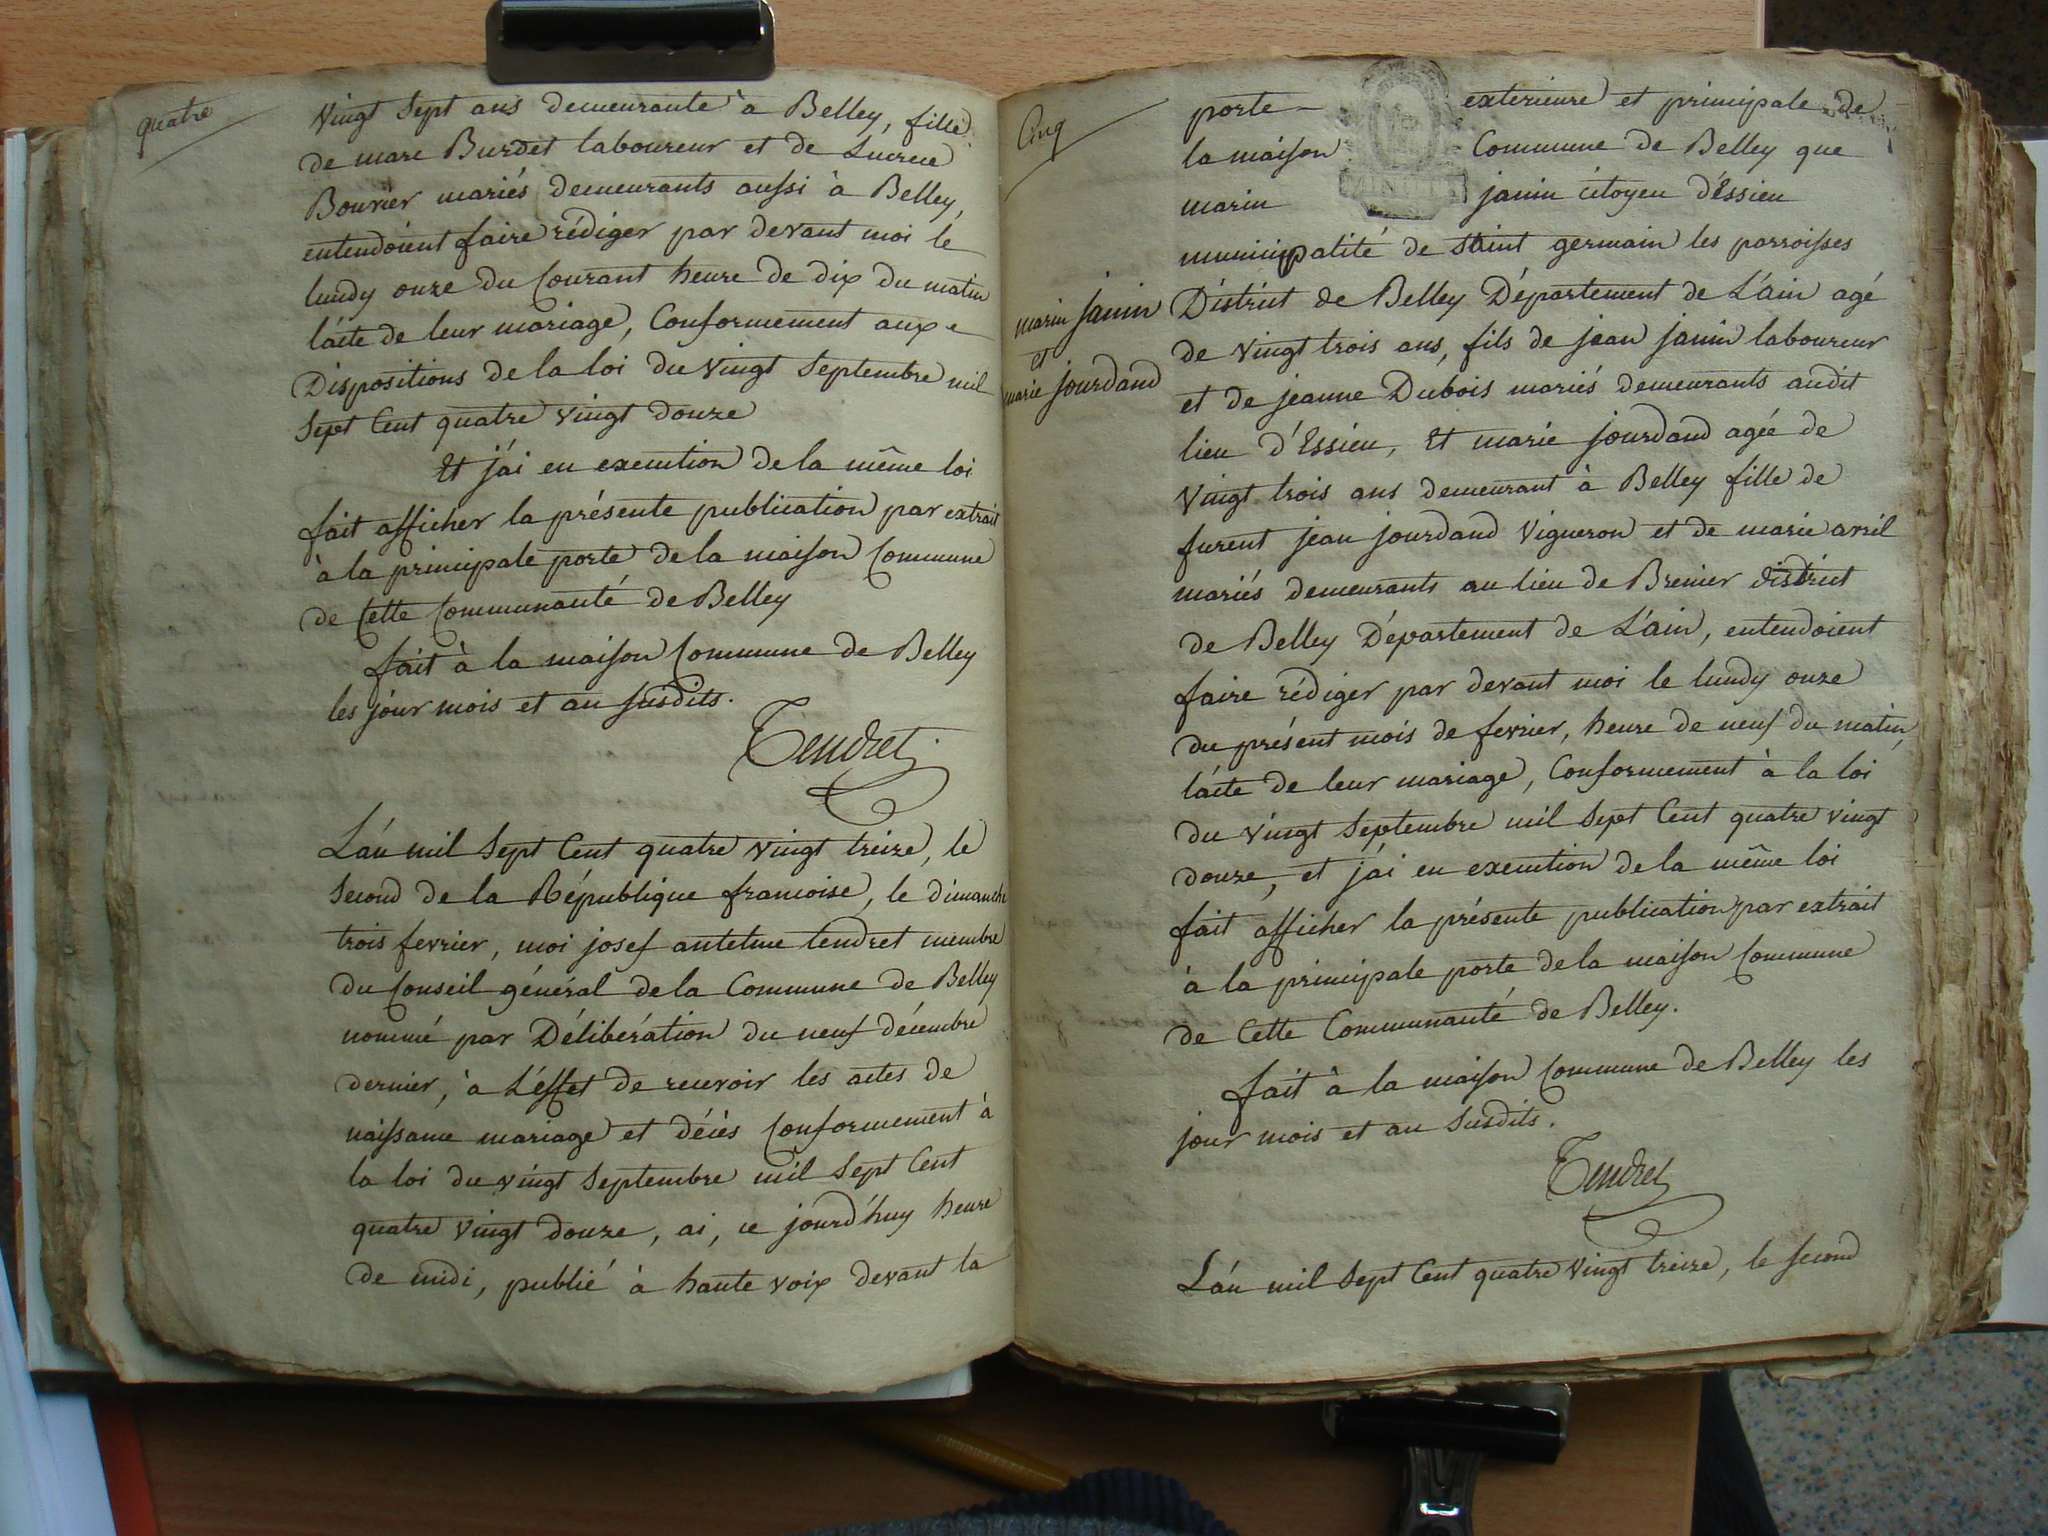 quatre
vingt sept ans demeurante à Belley, fille
de marc Burdet laboureur et de Lucrece
Bouvier mariés demeurants aussi à Belley,
entendoient faire rédiger par devant moi le
lundy onze du Courant heure de dix du matin
l'acte de leur mariage, Conformement aux
Dispositions de la loi du vingt Septembre mil
Sept Cent quatre vingt douze
Et j'ai en execution de la même loi
fait afficher la présente publication par extrait
à la principale porte de la maison Commune
de Cette Communauté de Belley
fait à la maison Commune de Belley
les jour mois et an susdits.
Tendret
L'an mil Sept Cent quatre vingt treize, le
Second de la République francoise, le dimanche
trois fevrier, moi josef antelme tendret membre
du Conseil général de la Commune de Belley
nommé par Délibération du neuf décembre
dernier, à L'effet de recevoir les actes de
naissance mariage et décès Conformement à
la loi du vingt Septembre mil Sept Cent
quatre vingt douze, ai, ce jourd'huy heure
de midi, publié à haute voix devant la
Cinq
porte exterieure et principale de
la maison Commune de Belley que
marin janin citoyen d'Essieu
municipalité de Saint germain les parroisses
District de Belley Département de L'ain agé
marin janin
et
marie jourdand
de vingt trois ans, fils de jean janin laboureur
et de jeanne Dubois mariés demeurants audit
lieu d'Essieu, Et marie jourdand agée de
vingt trois ans demeurant à Belley fille de
furent jean jourdand vigneron et de marie avril
mariés demeurants au lieu de Brenier district
de Belley Département de L'ain, entendoient
faire rédiger par devant moi le lundy onze
du présent mois de fevrier, heure de neuf du matin,
l'acte de leur mariage, Conformement à la loi
du vingt Septembre mil Sept Cent quatre vingt
douze, et j'ai en execution de la même loi
fait afficher la présente publication par extrait
à la principale porte de la maison Commune
de Cette Communauté de Belley.
fait à la maison Commune de Belley les
jour mois et an Susdits.
Tendret
L'an mil Sept Cent quatre vingt treize, le second